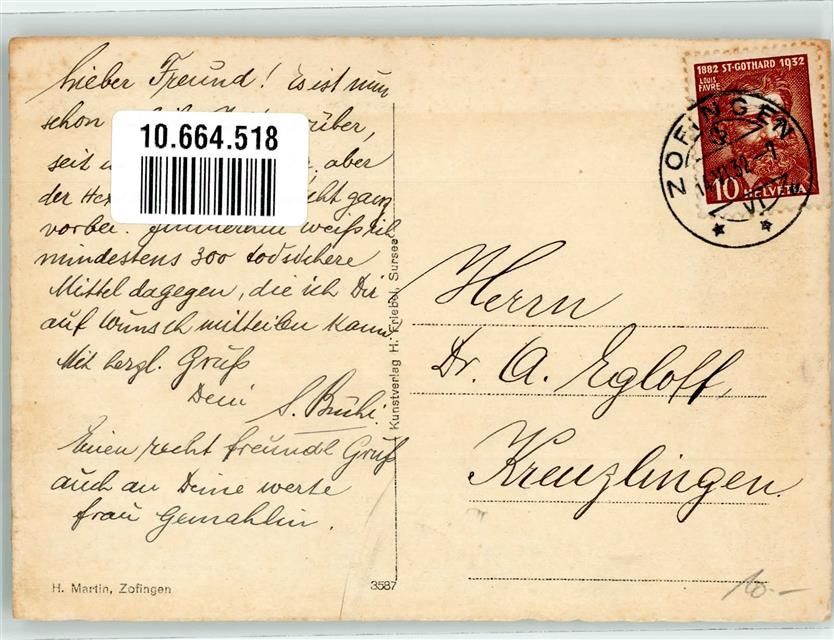 Lieber Freund! Es ist nun
schon vorüber,
seit aber
der Hex nicht ganz
vorbei. Immerhin weiß ich
mindestens 300 todsichere
Mittel dagegen, die ich Dir
auf Wunsch mitteilen kann
Mit herzl. Gruß
Dein S. Bühl.
Einen recht freundl Gruß
auch an Deine werte
Frau Gemahlin.
10.664.518
H. Martin, Zofingen
3587
Kunstverlag H. Friebel, Sursee
1882 ST-GOTHARD 1932
LOUIS
FAVRE
10 HELVETIA
ZOFINGEN
Herrn
Dr. A. Egloff,
Kreuzlingen.
10.-